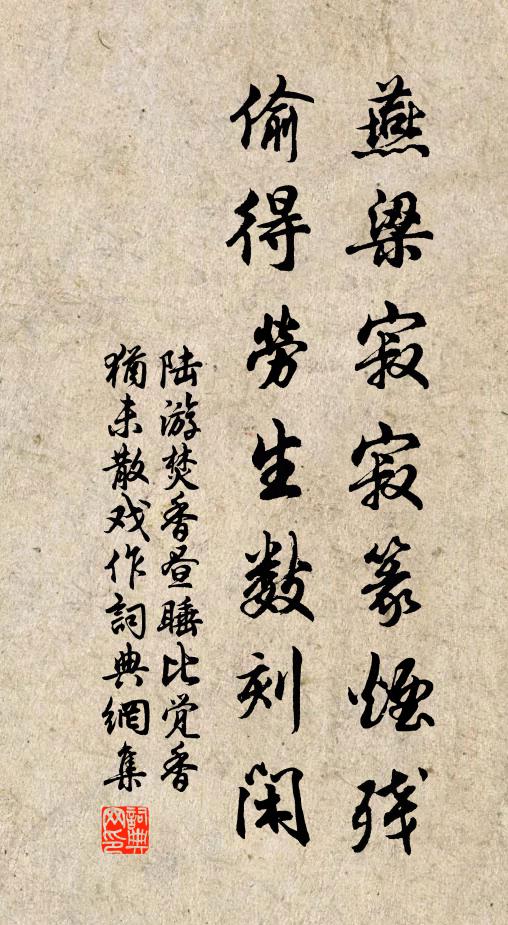 燕梁寂寂篆煙残
偷得勞生数刻閑
陆游焚香昼睡比觉香
猶未散戏作詞典網集
詞典网印